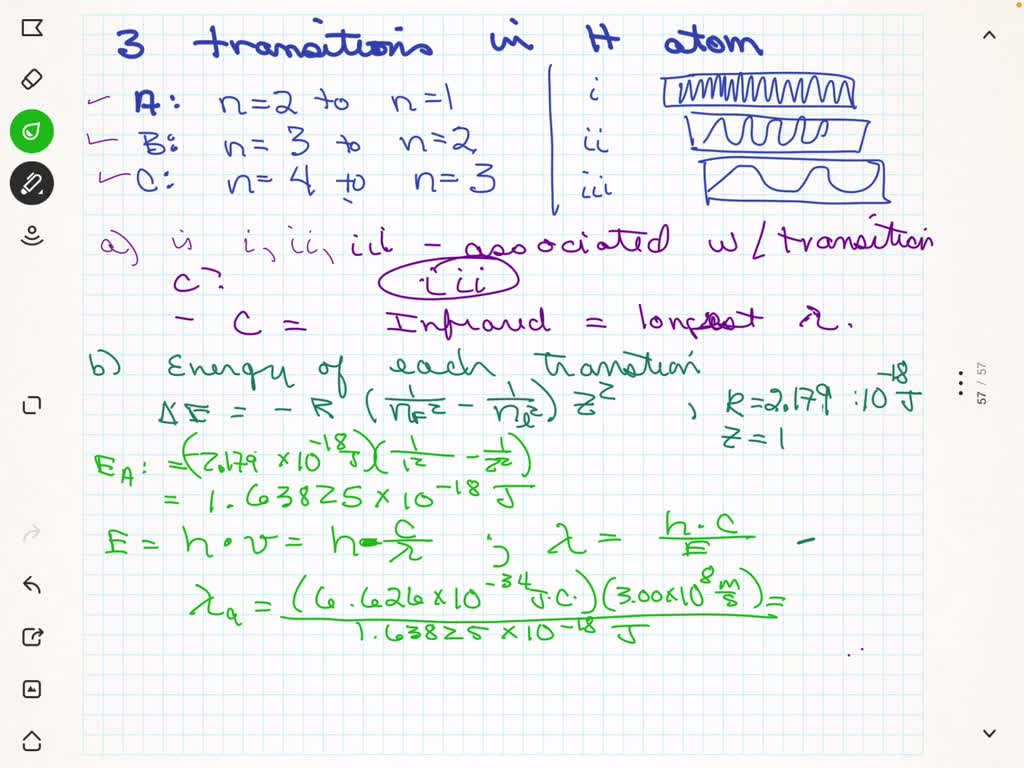 3 transitions in H atom
A: n=2 to n=1
B: n=3 to n=2
C: n=4 to n=3
i
ii
iii
a) is i, ii, iii - associated w/transition
C? iii
- C = Infrared = longest λ.
b) Energy of each transition
ΔE = - R (1/nF² - 1/ni²) Z² , R = 2.179 × 10⁻¹⁸ J
Z = 1
EA: = (2.179 × 10⁻¹⁸ J)(1/1² - 1/2²)
= 1.63825 × 10⁻¹⁸ J
E = h · ν = h · c/λ ; λ = h · c/E -
λa = (6.626 × 10⁻³⁴ J·C·)(3.00×10⁸ m/s)/1.63825 × 10⁻¹⁸ J =
57 / 57